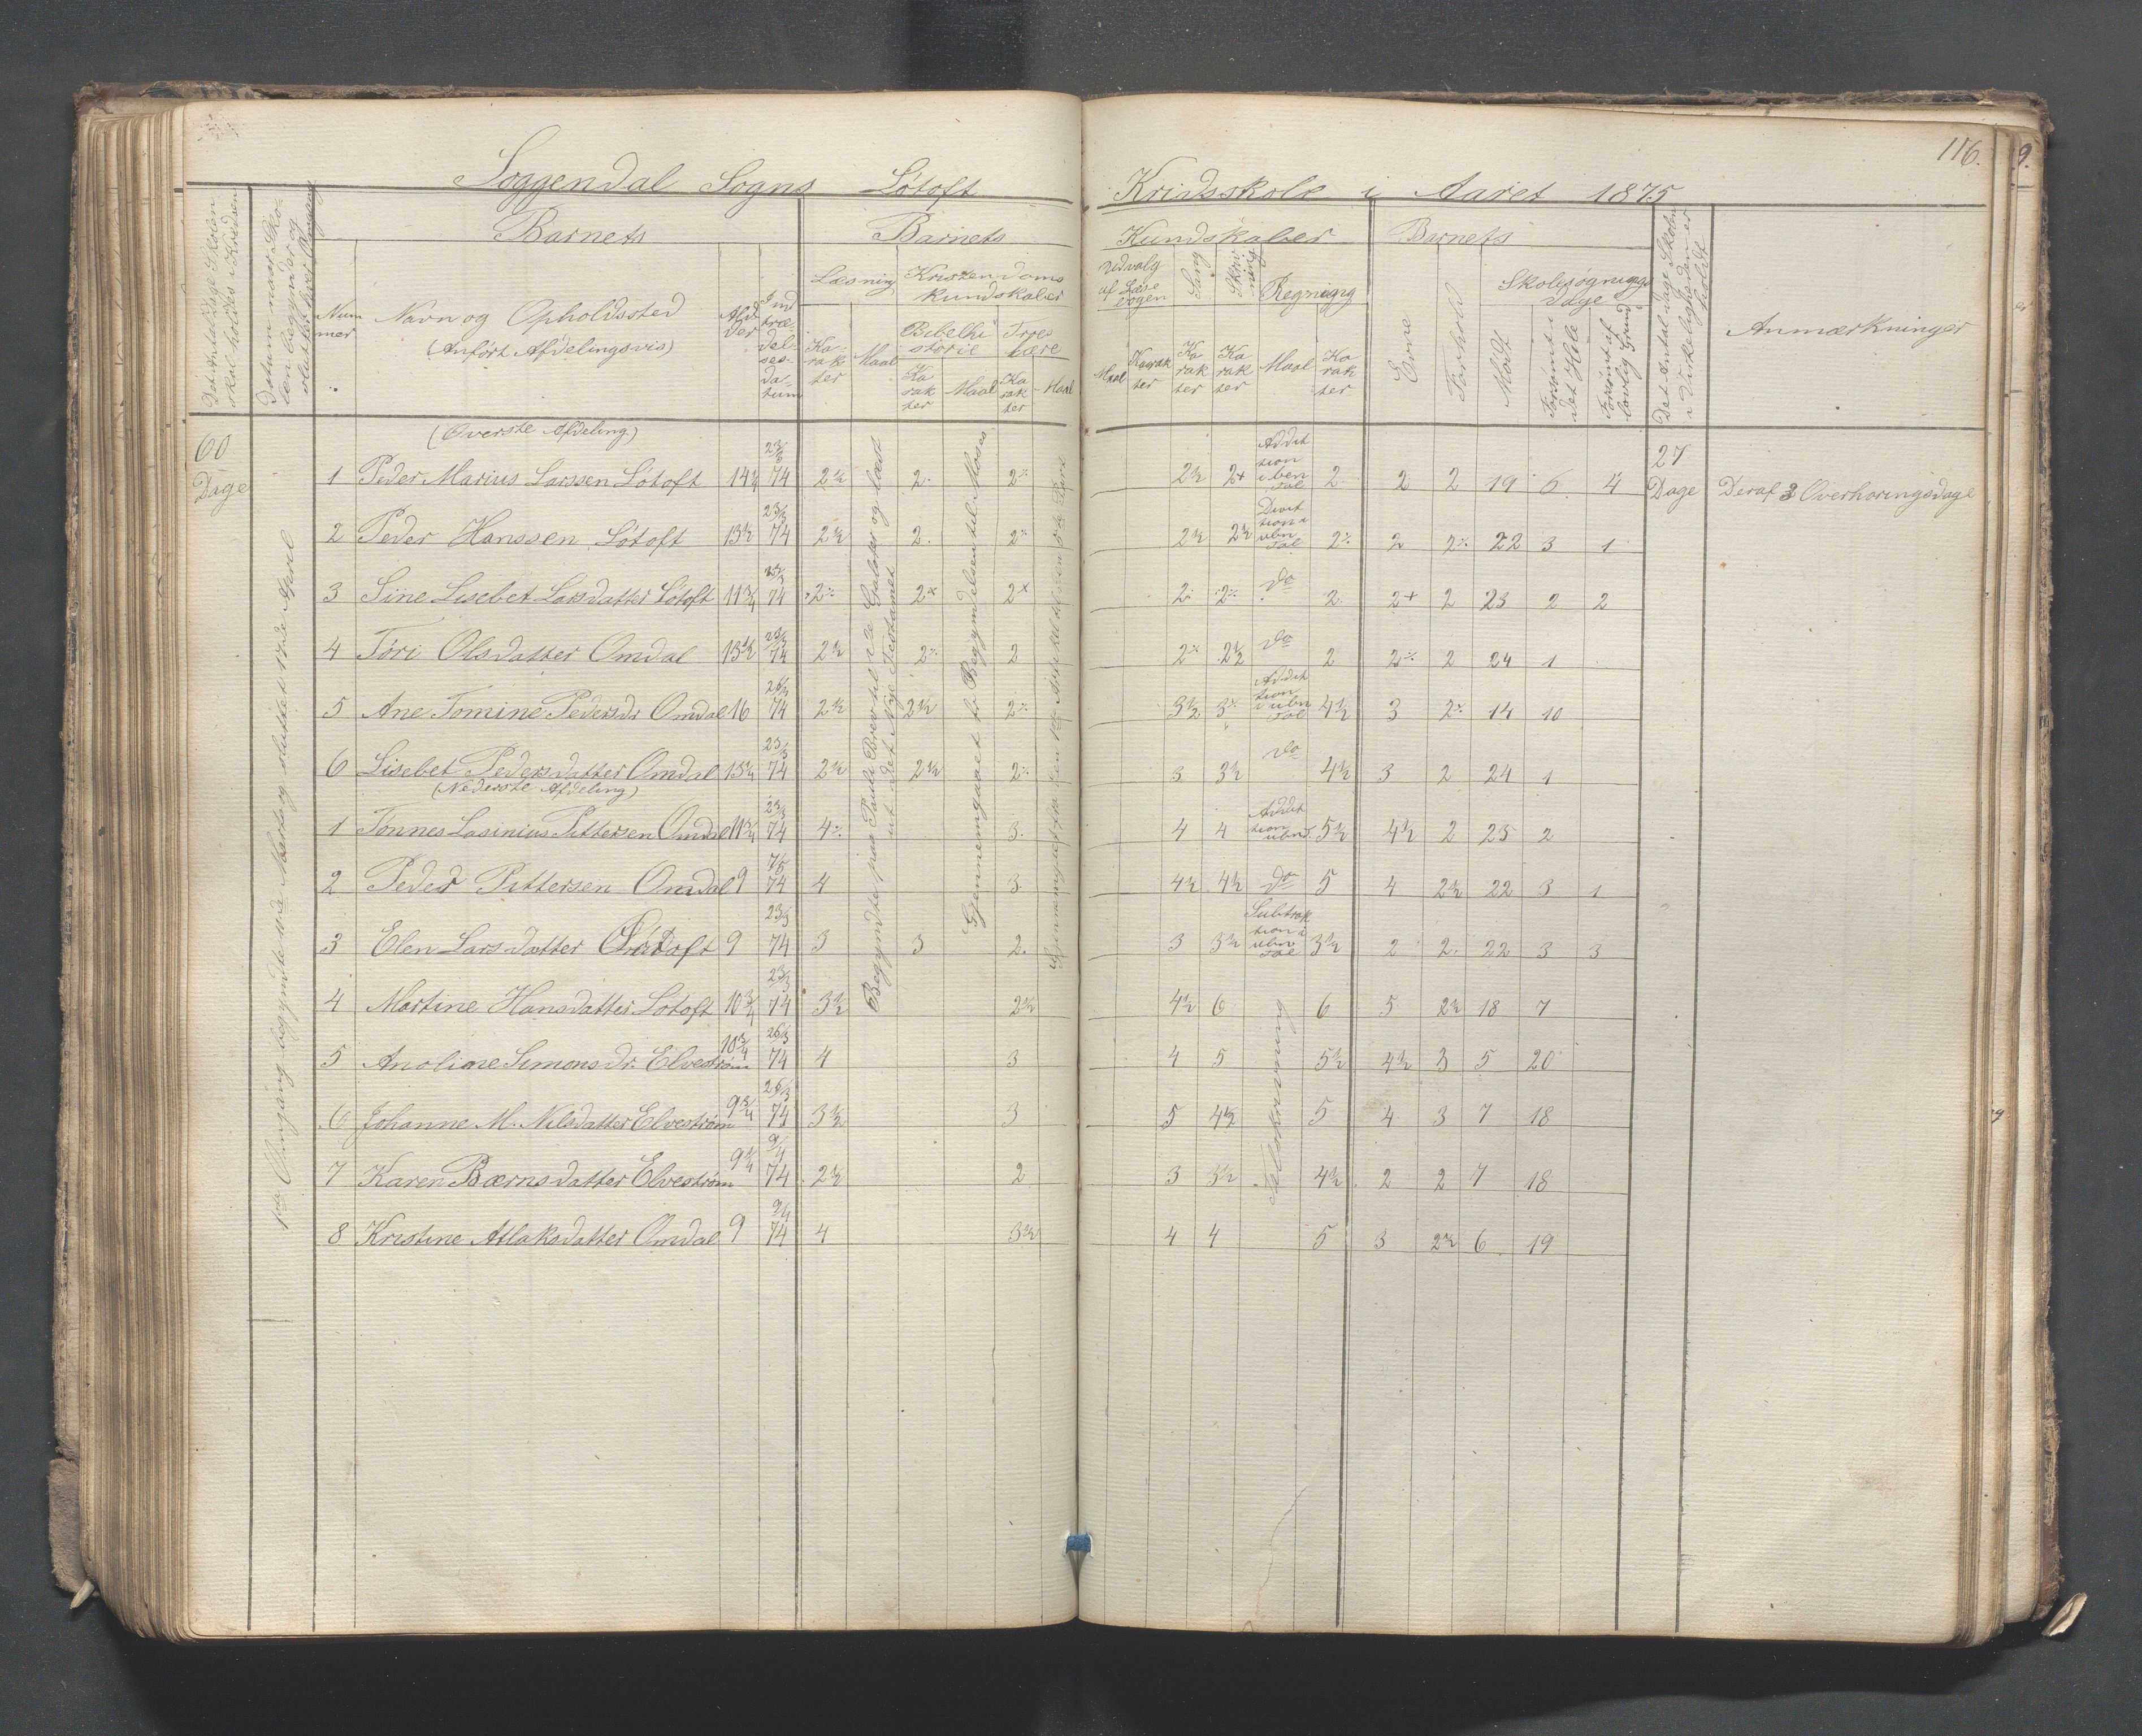 116.
Soggendal Sogns Løtoft Kridsskole i Aaret 1875
Det Antal Dage Skolen skal holdes i Kredsen
Datum naar Skolen begynder og slutter hver Omgang
Barnets
Nummer
Navn og Opholdssted
(Anført Afdelingsvis)
Alder
Indtrædelsesdatum
Barnets Kundskaber
Læsning
Karakter
Maal
Kristendomskundskaber
Bibelhistorie
Karakter
Maal
Troeslære
Karakter
Maal
Udvalg af Læsebogen
Maal
Karakter
Sang
Karakter
Skrivning
Karakter
Regning
Maal
Karakter
Barnets
Evne
Forhold
Skolesøgningsdage
Mødt
Forsømt i det Hele
Forsømt af lovlig Grund
Det Antal dage Skolen i Virkeligheden er holdt
Anmærkninger
60 Dage
1ste Omgang begyndte 11te Marts og sluttet 17de April
(Øverste Afdeling)
1 Peder Marius Larssen Løtoft 14¼ 23/3 74 2½ 2. 2% 2½ 2+ Addition i ben Tal 2 2 2 19 5 4 27 Dage Deraf 3 Overhøringsdage
2 Peder Hanssen Løtoft 13½ 23/3 74 2½ 2. 2% 2½ 2½ Division i ubn Tal 2% 2 2% 22 3 1
3 Sine Lisebet Larsdatter Løtoft 11¾ 23/3 74 2% 2+ 2+ 2% 2% do 2 2+ 2 23 2 2
4 Tøri Olsdatter Omdal 13½ 23/3 74 2½ 2% 2 2% 2½ do 2 2% 2 24 1
5 Ane Tomine Pedersdr Omdal 16 26/3 74 2½ 2½ 2% 3½ 3% Addition i ubn Tal 4½ 3 2% 14 10
6 Lisebet Pedersdatter Omdal 13¼ 23/3 74 2½ 2½ 2% 3 3½ do 4½ 3 2 24 1
(Nederste Afdeling)
1 Tønnes Lasinius Pittersen Omdal 11¾ 23/3 74 4% 3. 4 4 Addition ubn 5½ 4½ 2 23 2
2 Peder Pittersen Omdal 9 7/5 74 4 3 4½ 4½ do 5 4 2½ 22 3 1
3 Elen Larsdatter Løtoft 9 23/3 74 3 3 2. 3 3½ Subtraktion i ubn Tal 3½ 2 2. 22 3 3
4 Martine Hansdatter Løtoft 10¾ 23/3 74 3½ 2½ 4½ 6 6 5 2½ 18 7
5 Anoline Simonsdr. Elvestrøm 10¾ 26/3 74 4 3 4 5 5½ 4½ 3 5 20
6 Johanne M. Nilsdatter Elvestrøm 9¾ 26/3 74 3½ 3 5 4½ 5 4 3 7 18
7 Karen Bærnsdatter Elvestrøm 9¼ 9/4 74 2½ 2 3 3½ 4½ 2 2 7 18
8 Kristine Atlaksdatter Omdal 9 9/4 74 4 3½ 4 4 5 3 2½ 6 19
Begyndte paa Pauli Brev til de Galater og læst ut det Nye Testamet
Gjennemgaaet fr Begyndelsen til Moses
Talskrivning